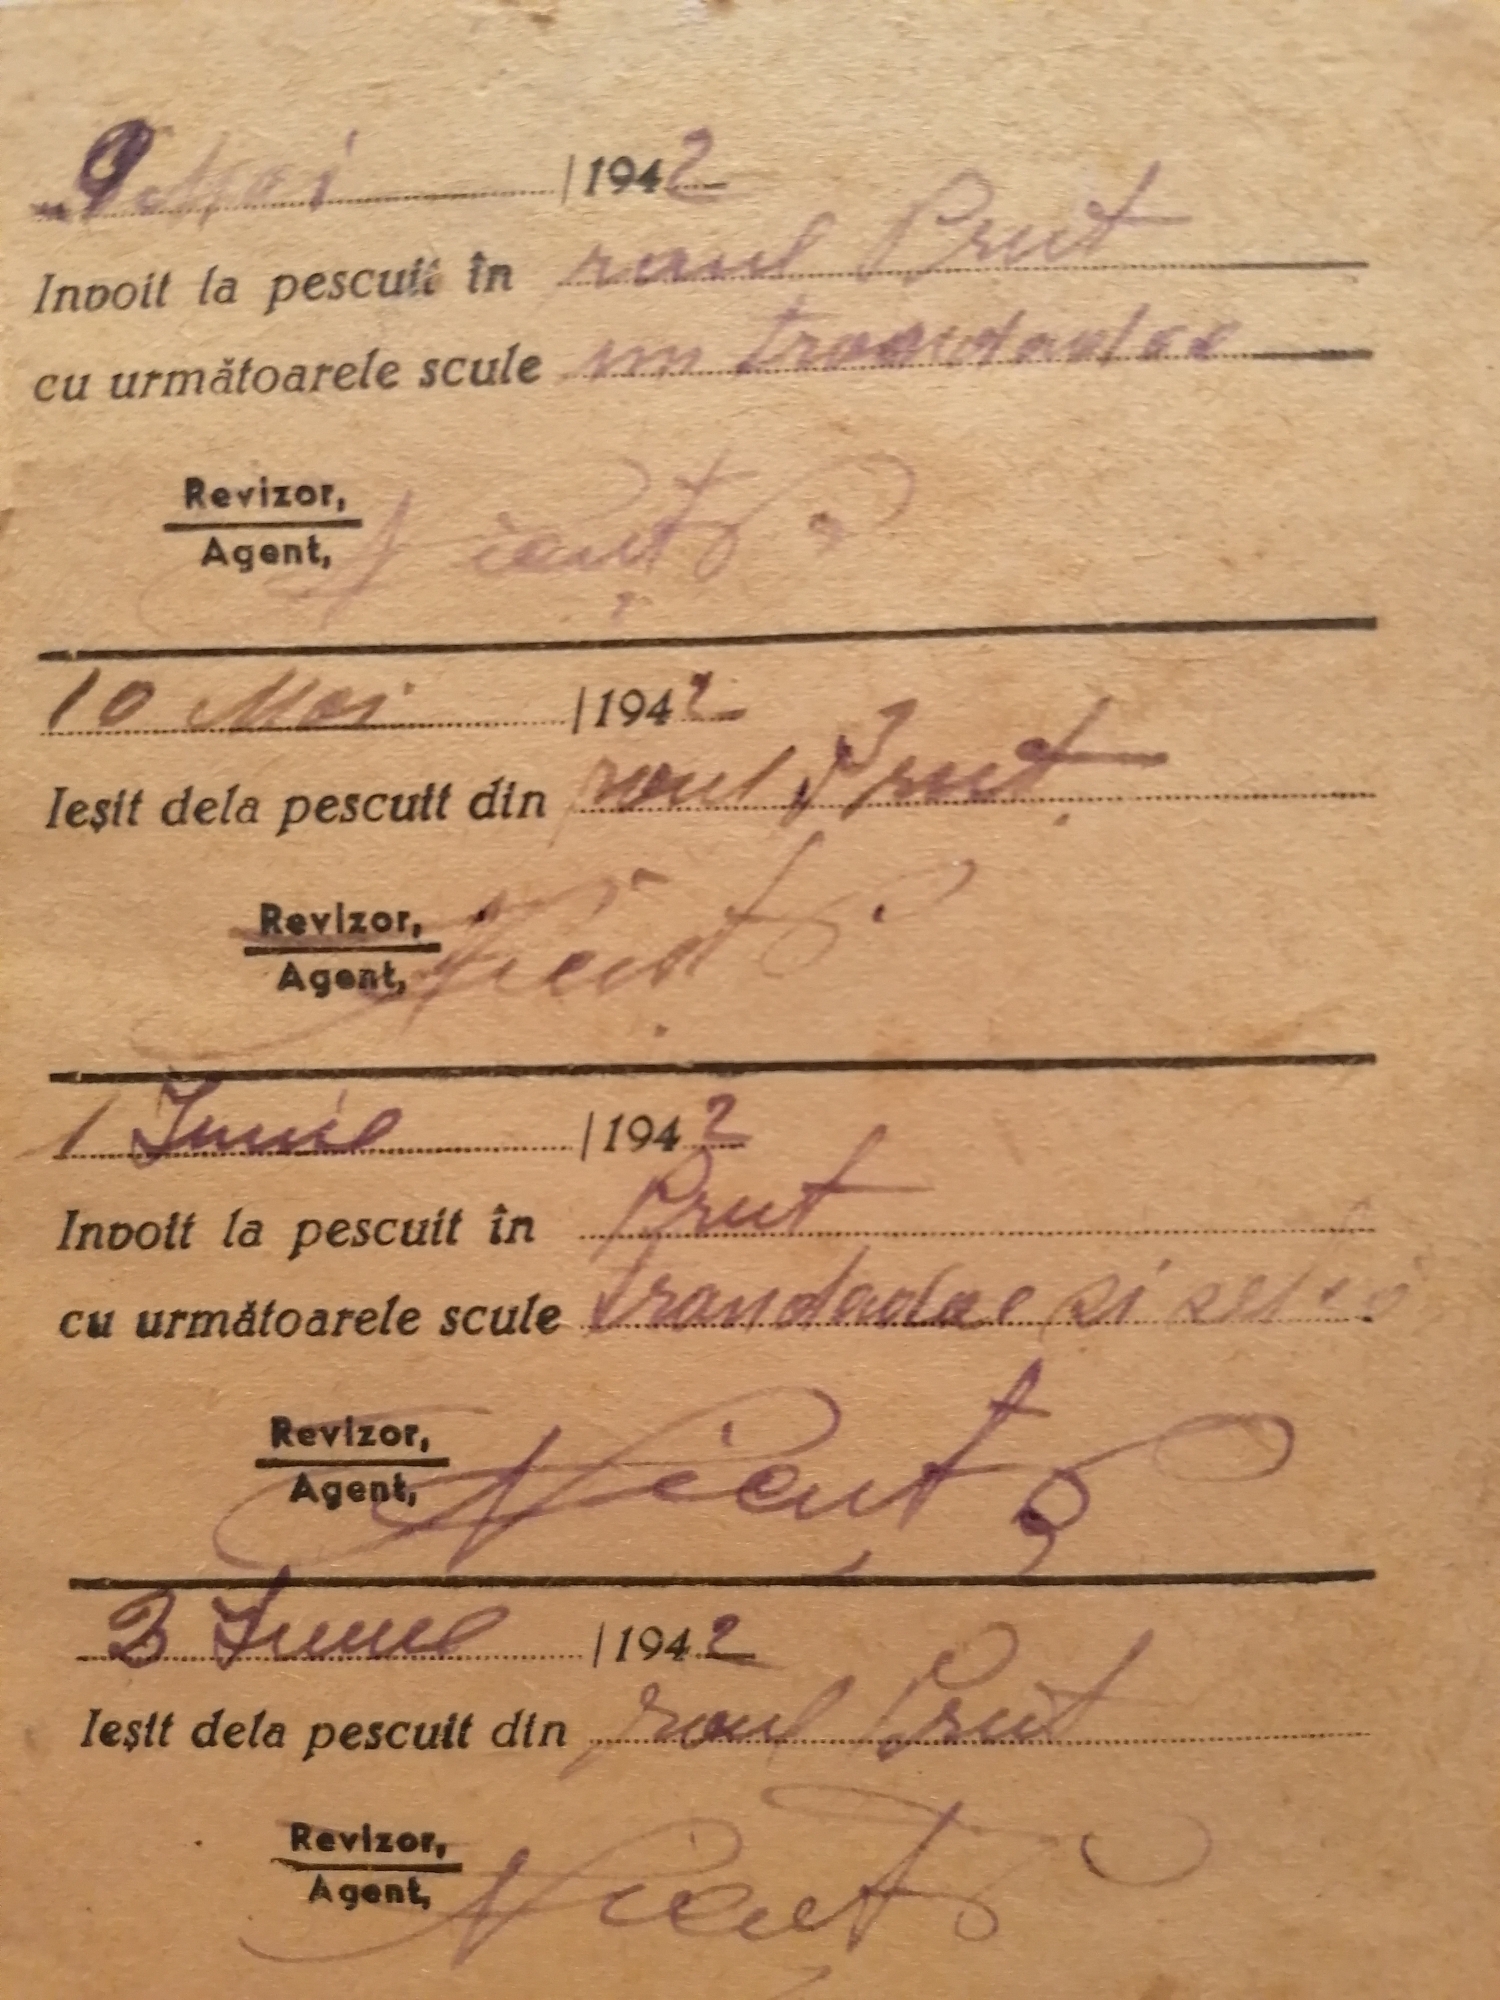 9 Mai | 1942
Invoit la pescuit în raul Prut
cu următoarele scule un trandadae
Revizor,
Agent,
10 Mai | 1942
Ieșit dela pescuit din raul Prut
Revizor,
Agent,
1 Iunie | 1942
Invoit la pescuit în Prut
cu următoarele scule trandadae si
Revizor,
Agent,
Iunie | 1942
Ieșit dela pescuit din raul Prut
Revizor,
Agent,